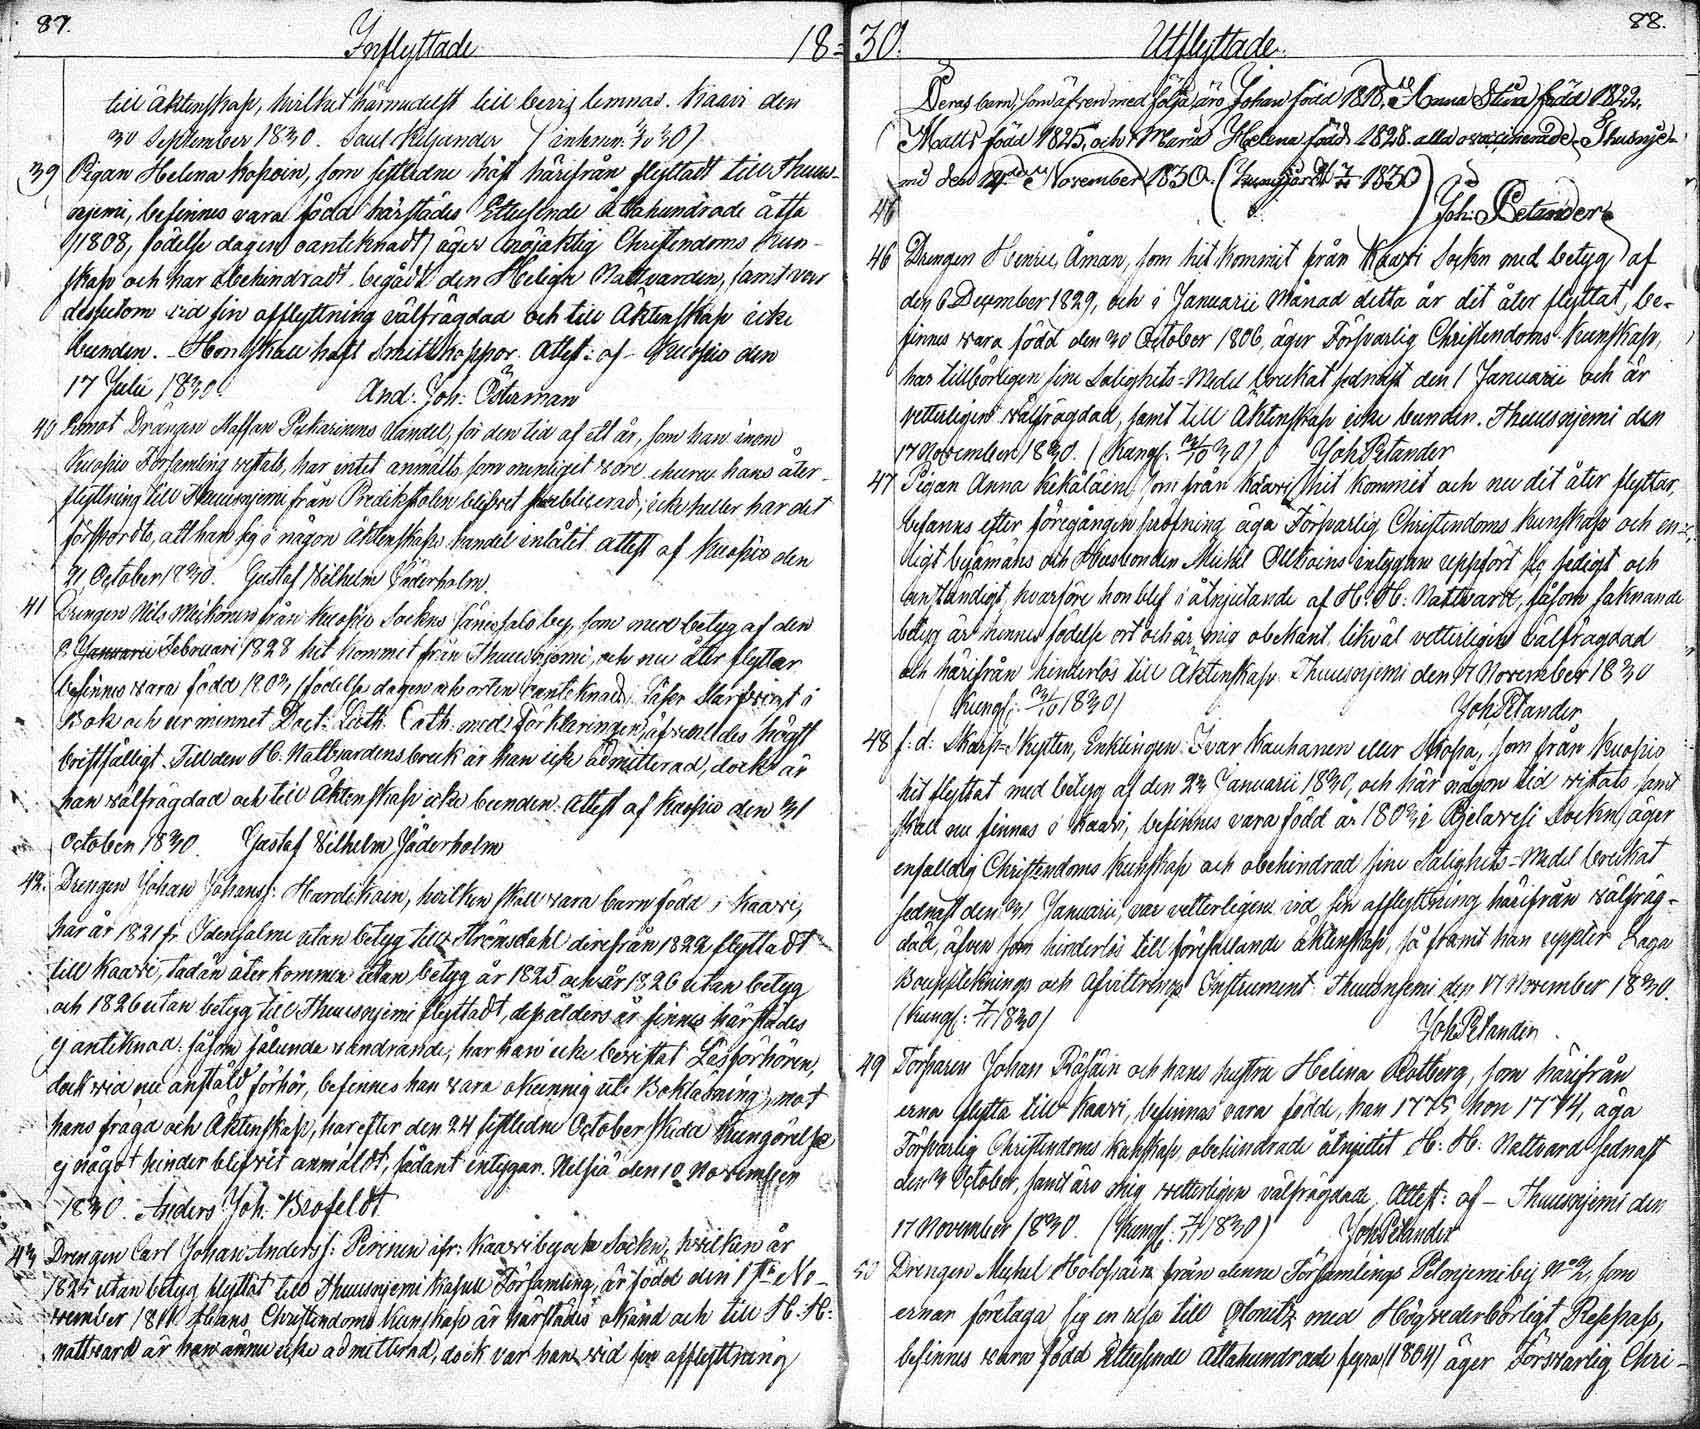 87.
Inflyttade
18=
till Äktenskap, hvilket härmedelst till bevis lemnas. Kaavi den
30 September 1830. Saul Kiljander
39 Pigan Helena Kosoin, som sistledne höst härifrån flyttadt till Thuus-
njemi, befinnes vara född härstädes Ettusende Åttahundrade åtta
(1808, födelse dagen oanteknadt) äger nöjaktig Christendoms Kun-
skap och har obehindradt begådt den Heliga Nattvarden, samt var
dessutom vid sin afflyttning välfrägdad och till Äktenskap icke
bunden. Hon skall haft Smittkoppor. Attest: af Kuopio den
17 Julii 1830. And. Joh: Österman
40 Emot Drängen Staffan Pukarinens vandel, för den tid af ett år, som han inom
Kuopio Församling vistats, har intet anmälts, som menligit vore, ehuru hans åter-
flyttning till Thuusnjemi från Predikstolen blifvit publicerad; icke heller har det
försports, att han sig i någon Äktenskaps handel inlåtit. Attest af Kuopio den
21 October 1830. Gustaf Wilhelm Jäderholm.
41 Drengen Nils Miskonen från Kuopio Sockns Jänissalo by, som med betyg af den
9 Januarii Februari 1828 hit kommit från Thuusnjemi, och nu åter flyttar
befinnes vara född 1803, (födelse dagen och orten oanteknad) läser Starfvist i
Bok och ur minnet Doct: Luth. Cath: med Förklaringen, äfvenledes högst
bristfälligt. Till den H. Nattvardens bruk är han icke admitterad, dock är
han välfrägdad och till Äktenskap icke bunden. Attest af Kuopio den 31
October 1830. Gustaf Wilhelm Jäderholm
42. Drengen Johan Johanss: Hardikain, hvilken skall vara barn född i Kaavi,
har år 1821 fr. Idensalmi utan betyg till Strömsdahl derefrån 1822 flyttadt
till Kaavi, dadan återkommen utan betyg år 1825 och år 1826 utan betyg
och 1826 utan betyg till Thuusnjemi flyttadt, dess ålders år finnes härstädes
ej anteknad: såsom sålunda vandrande; har han icke bevistat Läsförhören,
dock vid nu anstäldt förhör, befinnes han vara okunnig uti Bokläsning; mot
hans frägd och Äktenskap, har efter den 24 sistledne October skedd Kungörelse
ej något hinder blifvit anmäldt, sådant intygar. Nilsiä den 10 November
1830. Anders Joh. Brofeldt
43 Drengen Carl Johan Anderss: Pirinen ifr: Kaavi by och Sockn, hvilken år
1825 utan betyg flyttat till Thuusnjemi Kapell Församling, är född den 1sta No-
vember 1811. Hans Christendoms Kunskap är härstädes okänd och till H. H:
nattvard är han ännu icke admitterad, dock var han vid sin afflyttning
30.
Utflyttade.
88.
Deras barn, som äfven med följa, äro Johan född 1818, Anna Stina född 1822.
Matts född 1825, och Maria Helena född 1828. alla ovaccinerade. Thusnje-
mi den November 1830. (Kungjordt 1830)
Joh: Petander
46 Drengen Henric Åman, som hit kommit från Kaavi Sockn med betyg af
den 6 December 1829, och i Januarii månad ditta år dit åter flyttat, be-
finnes vara född den 30 October 1806, äger Försvarlig Christendoms Kunskap,
har tillbörligen sine Salighets=Medel brukat sednast den 1 Januarii och är
vetterligen välfrägdad, samt till Äktenskap icke bunden. Thuusnjemi den
17 November 1830. Joh Petander
47 Pigan Anna Kekäläin, som från Kaavi hit kommit och nu dit åter flyttar,
befanns efter föregången profning äga Försvarlig Christendoms Kunskap och en-
ligt byämäns och Husbonden Michel Ollikains intygan uppfört sig sedigt och
anständigt, hvarföre hon blef i åtnjutande af H. H. Nattvard, såsom saknande
betyg är hennes födelse ort och år mig obekant, likväl vetterligen välfrägdad
och härifrån hinderlös till Äktenskap. Thuusnjemi den 17 November 1830
Joh Petander
48 f: d: Skarp=Skytten, Enklingen Ivar Kauhanen eller Skopa, som från Kuopio
hit flyttat med betyg af den 23 Januarii 1830, och här någon tid vistats samt
skall nu finnas i Kaavi, befinnes vara född år 1803 i Pjelavesi Sockn, äger
enfaldig Christendoms Kunskap och obehindrad sine Salighets=Medel brukat
sednast den 31 Januarii, var vetterligen vid sin afflyttning härifrån välfräg-
dad, äfven som hinderlös till förefallande äktenskap, så framt han uppter Laga
Boupptecknings och Afvittrings Instrument. Thuusnjemi den 17 November 1830.
Joh Petander.
49 Torparen Johan Räsäin och hans hustru Helena Rotberg, som härifrån
erna flytta till Kaavi, befinnas vara födde, han 1775 hon 1774, äga
Försvarlig Christendoms Kunskap, obehindrade åtnjutit H: H: Nattvard sednast
den 3 October, samt äro mig vetterligen välfrägdade. Attest: af Thuusnjemi den
17 November 1830. Joh Petander
50 Drengen Michel Holopain från denne Församlings Pelonjemi by No 2, som
ernar företaga sig en resa till Olonitz med Högvederbörligt Respass,
befinnes vara född Ettusende Åttahundrade fyra (1804) äger Försvarlig Chri-